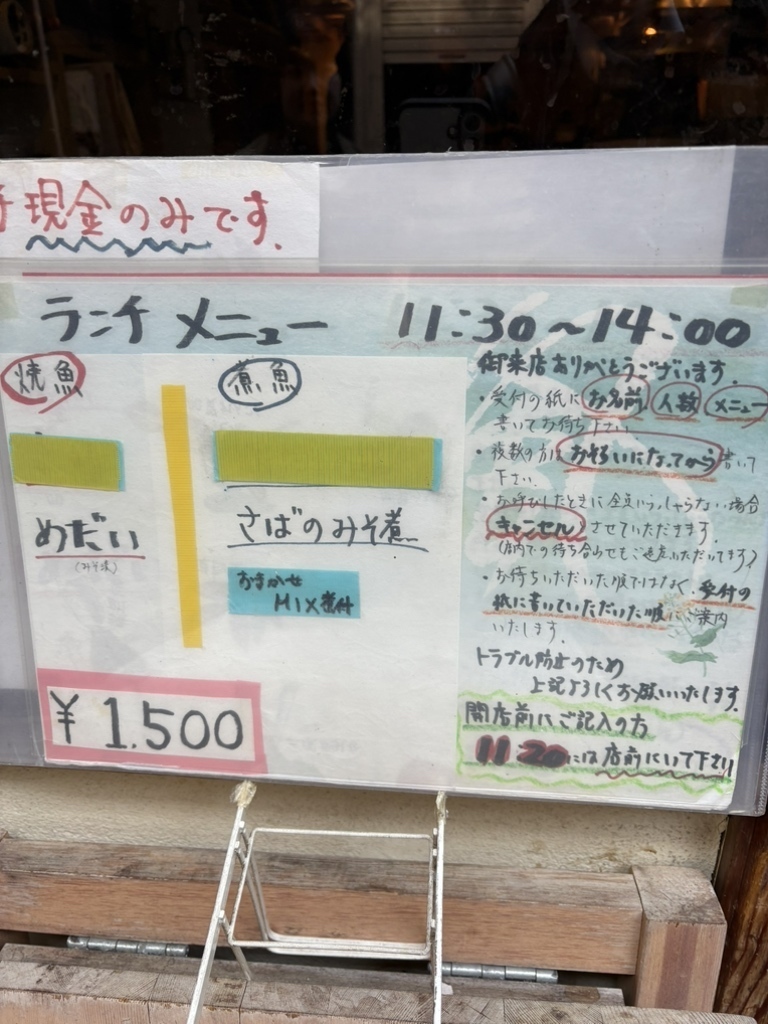 現金のみです.
ランチメニュー 11:30~14:00
焼魚
めだい
(みそ漬)
煮魚
さばのみそ煮
おまかせ
MIX煮付
¥1,500
御来店ありがとうございます.
・受付の紙に お名前 人数 メニュー
書いてお待ち下さい
・複数の方は おそろいになってから 書いて
下さい.
・お呼びしたときに全員いらっしゃらない場合
キャンセル させていただきます.
(店内での待ち合わせもご遠慮いただいてます)
・お待ちいただいた順ではなく、受付の
紙に書いていただいた順にご案内
いたします.
トラブル防止のため
上記よろしくお願いいたします.
開店前にご記入の方
11:20には店前にいて下さい